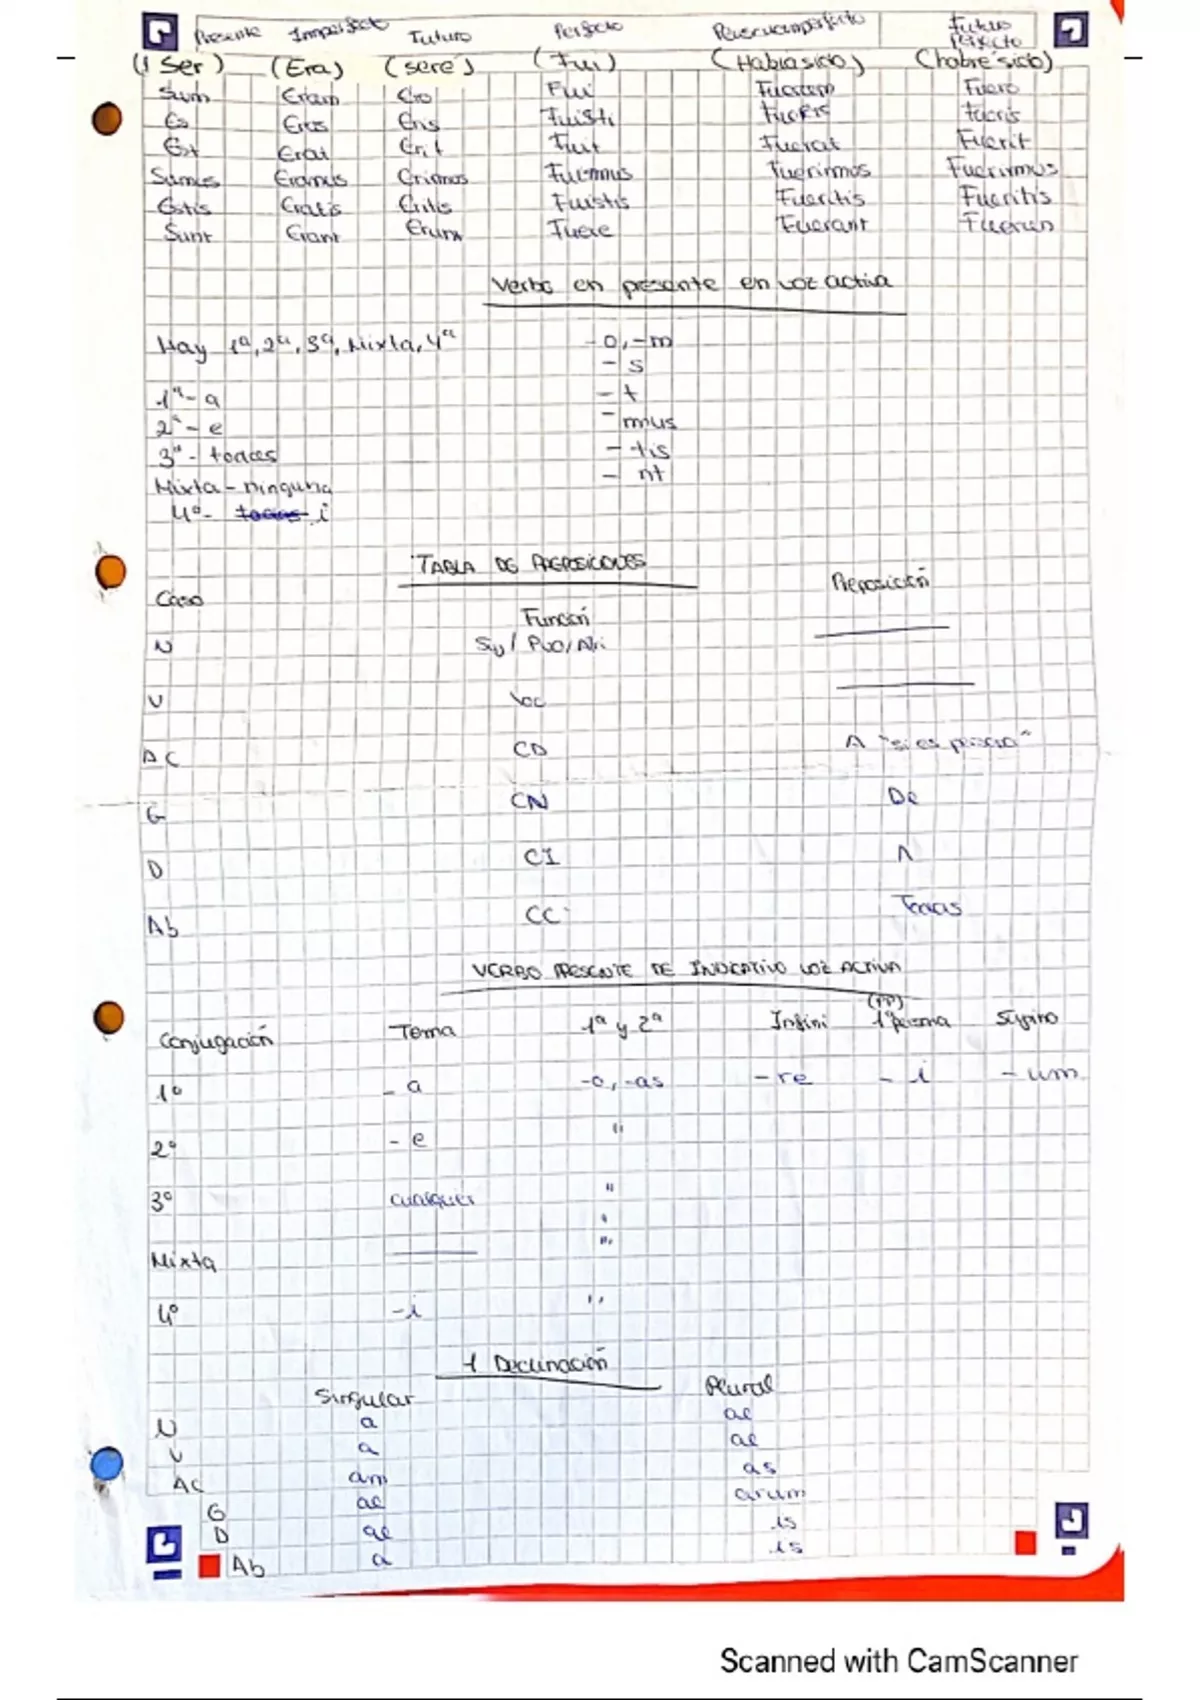 Presente Imperfecto Futuro Perfecto Pluscuamperfecto Futuro Perfecto
(1 Ser) (Era) (seré) (Fui) (Habia sido) (habré sido)
Sum Eram Ero Fui Fueram Fuero
Es Eras Eris Fuisti Fueris fueris
Est Erat Erit Fuit Fuerat Fuerit
Sumus Eramus Erimos Fuimus Fuerimos Fuerimus
Estis Eratis Eritis Fuistis Fueritis Fueritis
Sunt Erant Erunt Fuere Fuerant Fuerun
Verbo en presente en voz activa
Hay 1ª, 2ª, 3ª, Mixta, 4ª -o, -m
- s
1ª - a - t
2ª - e - mus
3ª - todas - tis
Mixta - ninguna - nt
4ª - todas i
TABLA DE PREPOSICIONES
Caso Función Preposición
N Suj / PVO / Atri
V Voc
AC CD A "si es persona"
G CN De
D CI A
Ab CC Todas
VERBO PRESENTE DE INDICATIVO VOZ ACTIVA
Conjugación Tema 1ª y 2ª Infini (PP) 1ª persona Supino
1º - a -o, -as - re - i - um
2º - e "
3º cualquier "
Mixta "
4º - i "
1 Declinación
Singular Plural
N a ae
V a ae
AC am as
G ae arum
D ae is
Ab a is
Scanned with CamScanner